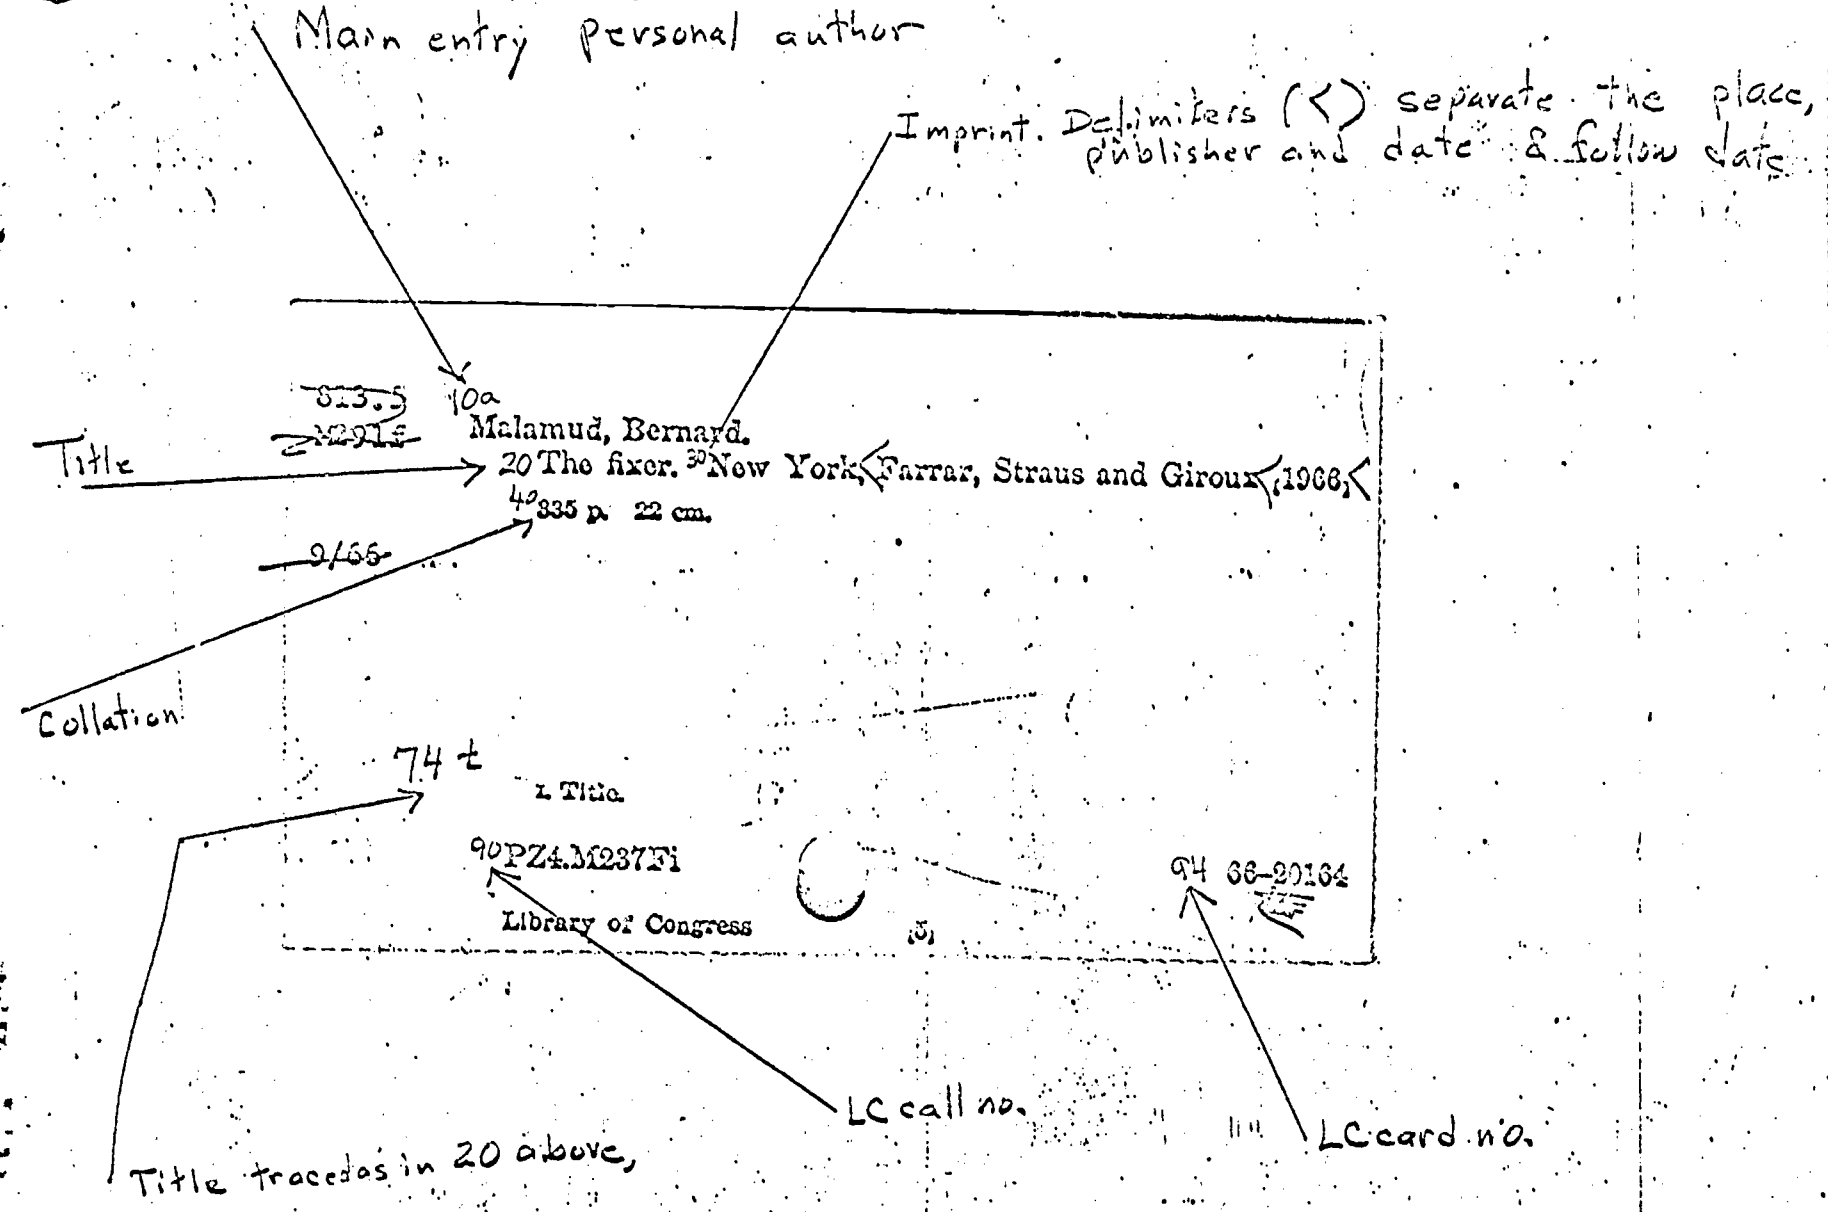 Main entry personal author
Imprint. Delimiters (<) separate the place,
publisher and date & follow date
813.5 10a
Malamud, Bernard.
Title
20 The fixer. 30 New York,< Farrar, Straus and Giroux< 1966,<
40 335 p. 22 cm.
9/66
Collation
74 t
I. Title.
90 PZ4.M237Fi
94 66-20164
Library of Congress
[5]
LC call no.
LC card no.
Title traced as in 20 above,